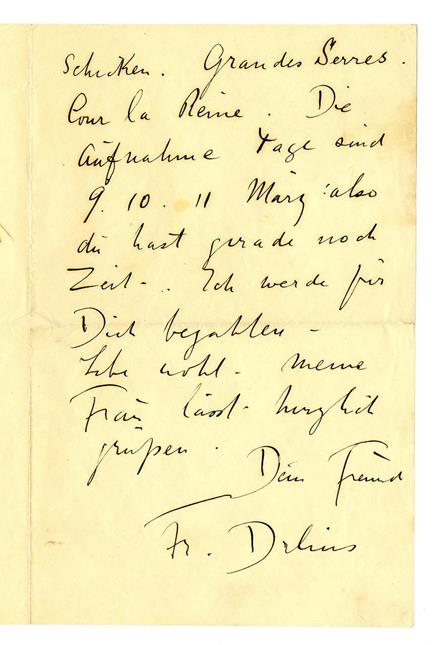 Schicken. Grandes Serres.
Cour la Reine. Die
Aufnahme Tage sind
9. 10. 11 März: also
du hast gerade noch
Zeit-. Ich werde für
Dich bezahlen -
Lebe wohl - meine
Frau lässt herzlich
grüßen.
Dein Freund
Fr. Delius